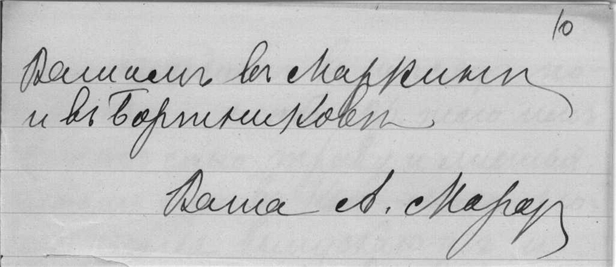 10
Вашимъ въ Маркинѣ
и въ Бортниковѣ
Ваша А.